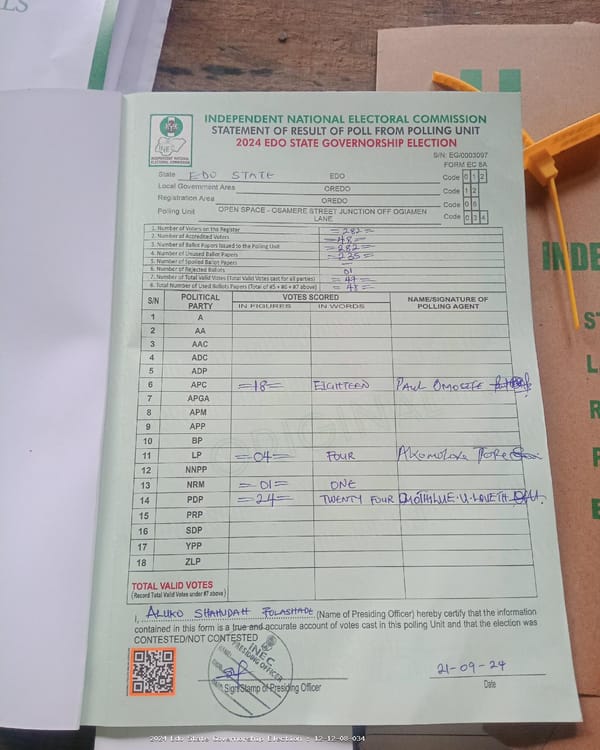 LS
INDEPENDENT NATIONAL ELECTORAL COMMISSION
STATEMENT OF RESULT OF POLL FROM POLLING UNIT
2024 EDO STATE GOVERNORSHIP ELECTION
S/N: EG/0003097
FORM EC 8A
INEC
INDEPENDENT NATIONAL ELECTORAL COMMISSION
State EDO STATE EDO Code 0 1 2
Local Government Area OREDO Code 1 2
Registration Area OREDO Code 0 8
Polling Unit OPEN SPACE - OSAMERE STREET JUNCTION OFF OGIAMEN LANE Code 0 3 4
1. Number of Voters on the Register =282=
2. Number of Accredited Voters =48=
3. Number of Ballot Papers Issued to the Polling Unit =282=
4. Number of Unused Ballot Papers =235=
5. Number of Spoiled Ballot Papers —
6. Number of Rejected Ballots 01
7. Number of Total Valid Votes (Total Valid Votes cast for all parties) =47=
8. Total Number of Used Ballots Papers (Total of #5 + #6 + #7 above) =48=
S/N POLITICAL PARTY VOTES SCORED NAME/SIGNATURE OF POLLING AGENT
IN FIGURES IN WORDS
1 A
2 AA
3 AAC
4 ADC
5 ADP
6 APC =18= EIGHTEEN PAUL
7 APGA
8 APM
9 APP
10 BP
11 LP =04= FOUR
12 NNPP
13 NRM =01= ONE
14 PDP =24= TWENTY FOUR
15 PRP
16 SDP
17 YPP
18 ZLP
ORIGINAL
TOTAL VALID VOTES
(Record Total Valid Votes under #7 above)
I, ALUKO SHAINDAH FOLASHADE (Name of Presiding Officer) hereby certify that the information
contained in this form is a true and accurate account of votes cast in this polling Unit and that the election was
CONTESTED/NOT CONTESTED
INEC
PRESIDING OFFICER
Sign/Stamp of Presiding Officer
21-09-24
Date
INDE
ST
L
R
P
E
2024 Edo State Governorship Election - 12-12-08-034